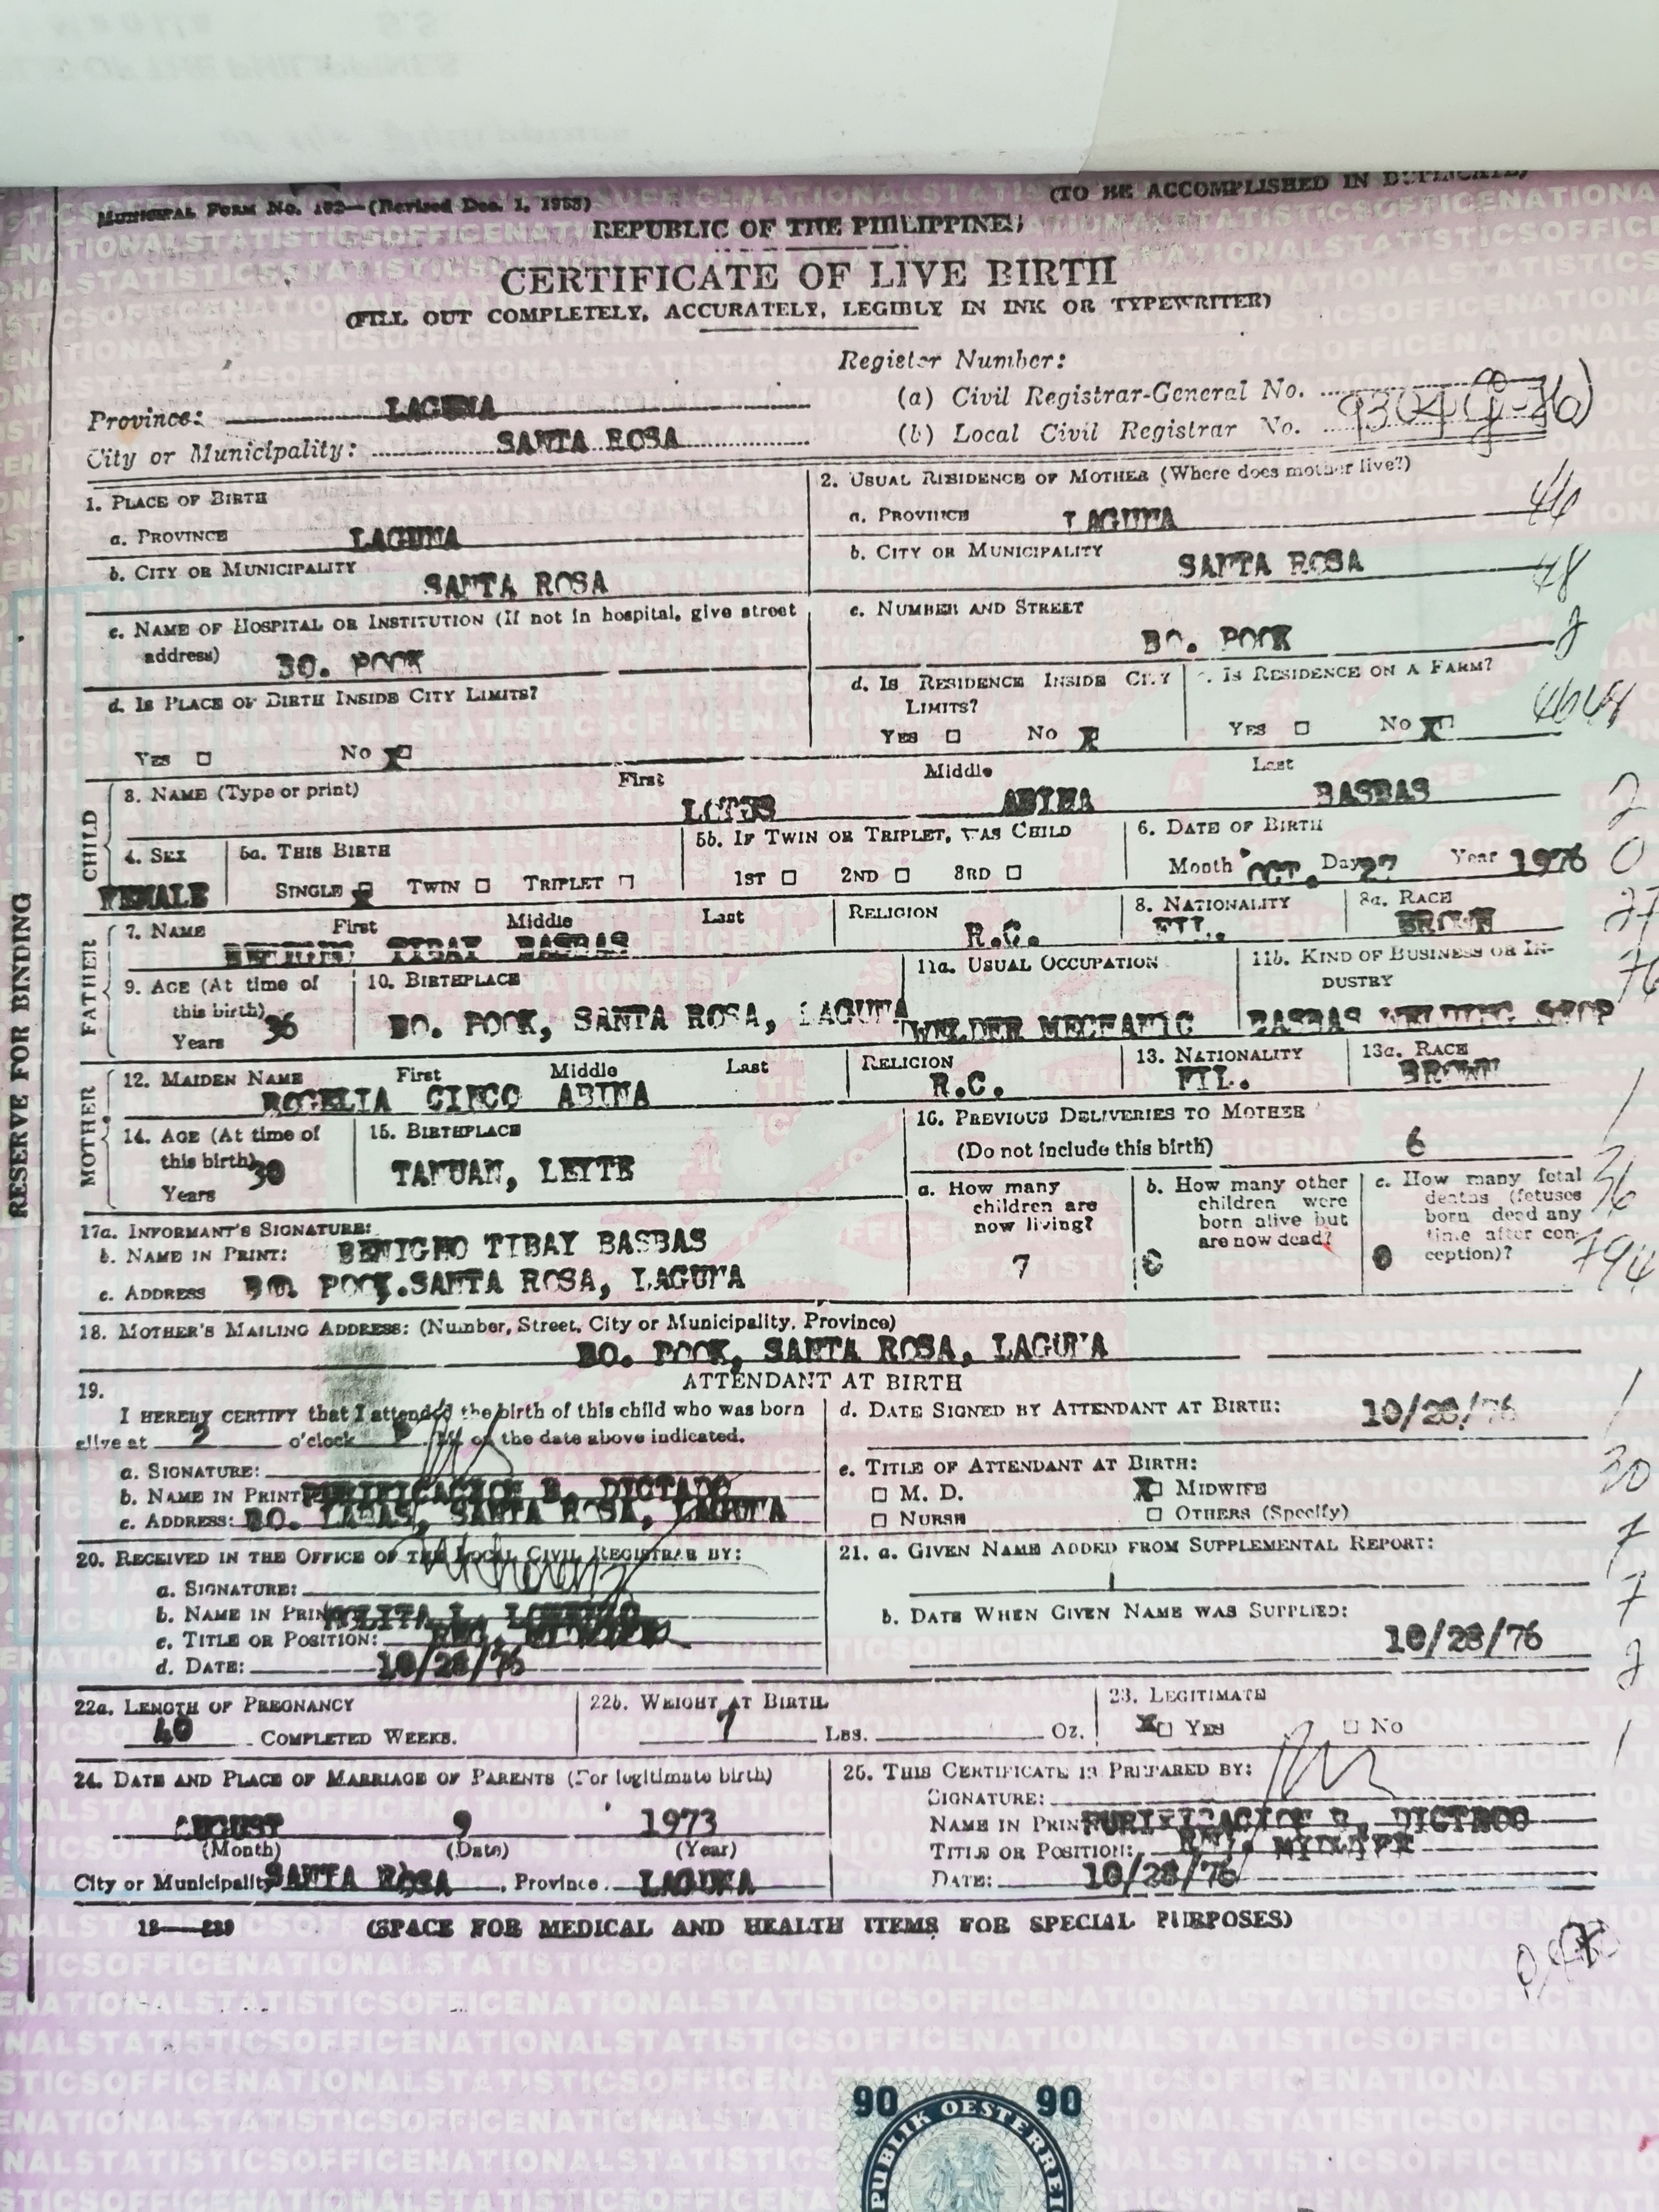 MUNICIPAL FORM No. 102—(Revised Dec. 1, 1958)
(TO BE ACCOMPLISHED IN DUPLICATE)
REPUBLIC OF THE PHILIPPINES
CERTIFICATE OF LIVE BIRTH
(FILL OUT COMPLETELY, ACCURATELY, LEGIBLY IN INK OR TYPEWRITER)
Register Number:
(a) Civil Registrar-General No.
Province: LAGUNA
(b) Local Civil Registrar No.
City or Municipality: SANTA ROSA
1. PLACE OF BIRTH
a. PROVINCE LAGUNA
b. CITY OR MUNICIPALITY
SANTA ROSA
c. NAME OF HOSPITAL OR INSTITUTION (If not in hospital, give street
address) BO. POOK
d. IS PLACE OF BIRTH INSIDE CITY LIMITS?
YES NO X
2. USUAL RESIDENCE OF MOTHER (Where does mother live?)
a. PROVINCE LAGUNA
46
b. CITY OR MUNICIPALITY
SANTA ROSA
48
c. NUMBER AND STREET
BO. POOK
2
d. IS RESIDENCE INSIDE CITY
LIMITS?
YES NO X
e. IS RESIDENCE ON A FARM?
YES NO X
4648
RESERVE FOR BINDING
CHILD
3. NAME (Type or print) First Middle Last
ABINA BASBAS
2
4. SEX
FEMALE
5a. THIS BIRTH
SINGLE X TWIN TRIPLET
5b. IF TWIN OR TRIPLET, WAS CHILD
1ST 2ND 3RD
6. DATE OF BIRTH
Month OCT. Day 27 Year 1976
0
FATHER
7. NAME First Middle Last
BENIGNO TIBAY BASBAS
RELIGION
R.C.
8. NATIONALITY
FIL.
8a. RACE
BROWN
27
9. AGE (At time of
this birth)
Years 36
10. BIRTHPLACE
BO. POOK, SANTA ROSA, LAGUNA
11a. USUAL OCCUPATION
WELDER MECHANIC
11b. KIND OF BUSINESS OR IN-
DUSTRY
BASBAS WELDING SHOP
76
MOTHER
12. MAIDEN NAME First Middle Last
ROGELIA CINCO ABINA
RELIGION
R.C.
13. NATIONALITY
FIL.
13a. RACE
BROWN
1
14. AGE (At time of
this birth)
Years 30
15. BIRTHPLACE
TANUAN, LEYTE
16. PREVIOUS DELIVERIES TO MOTHER
(Do not include this birth) 6
36
a. How many
children are
now living?
7
b. How many other
children were
born alive but
are now dead?
c. How many fetal
deaths (fetuses
born dead any
time after con-
ception)?
794
17a. INFORMANT'S SIGNATURE:
b. NAME IN PRINT: BENIGNO TIBAY BASBAS
c. ADDRESS BO. POOK.SANTA ROSA, LAGUNA
18. MOTHER'S MAILING ADDRESS: (Number, Street, City or Municipality, Province)
BO. POOK, SANTA ROSA, LAGUNA
ATTENDANT AT BIRTH
19.
I HEREBY CERTIFY that I attended the birth of this child who was born
alive at 2 o'clock P M on the date above indicated.
a. SIGNATURE:
b. NAME IN PRINT: PURIFICACION B. DICTADO
c. ADDRESS: BO. LABAS, SANTA ROSA, LAGUNA
d. DATE SIGNED BY ATTENDANT AT BIRTH: 10/28/76
1
e. TITLE OF ATTENDANT AT BIRTH:
M. D. X MIDWIFE
NURSE OTHERS (Specify)
30
20. RECEIVED IN THE OFFICE OF THE LOCAL CIVIL REGISTRAR BY:
a. SIGNATURE:
b. NAME IN PRINT:
c. TITLE OR POSITION:
d. DATE: 10/28/76
21. a. GIVEN NAME ADDED FROM SUPPLEMENTAL REPORT:
7
b. DATE WHEN GIVEN NAME WAS SUPPLIED:
10/28/76
7
2
22a. LENGTH OF PREGNANCY
40 COMPLETED WEEKS.
22b. WEIGHT AT BIRTH
7 LBS. OZ.
23. LEGITIMATE
X YES NO
1
24. DATE AND PLACE OF MARRIAGE OF PARENTS (For legitimate birth)
AUGUST 9 1973
(Month) (Date) (Year)
City or Municipality SANTA ROSA, Province LAGUNA
25. THIS CERTIFICATE IS PREPARED BY:
SIGNATURE:
NAME IN PRINT: PURIFICACION B. DICTADO
TITLE OR POSITION: MIDWIFE
DATE: 10/28/76
(SPACE FOR MEDICAL AND HEALTH ITEMS FOR SPECIAL PURPOSES)
90 90